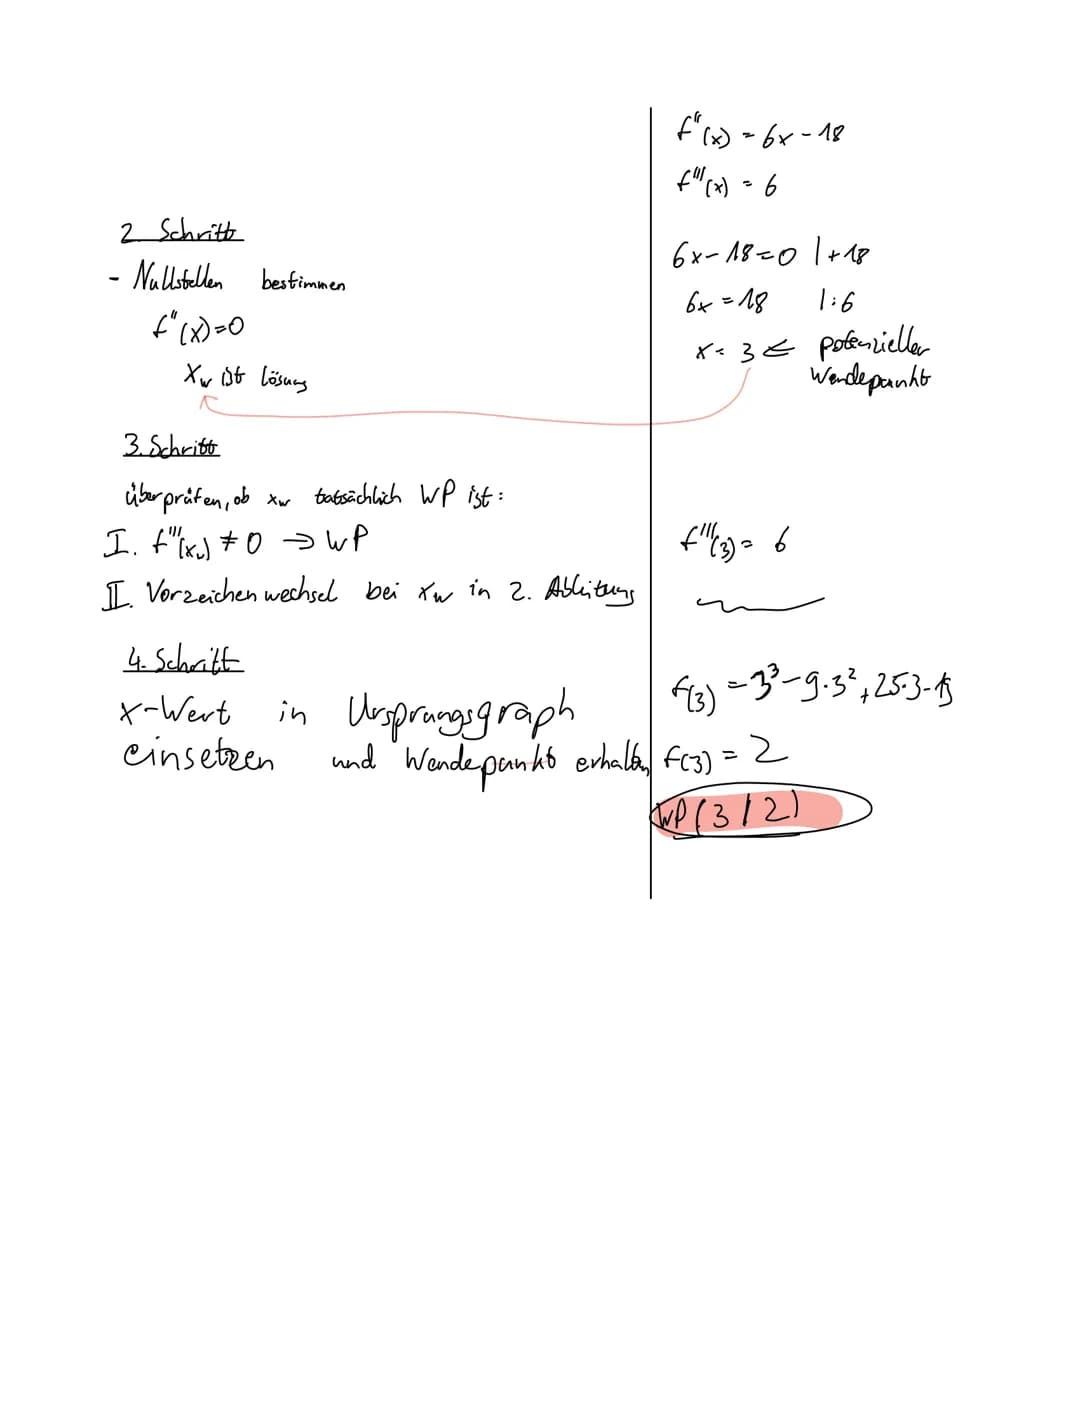 f''(x) = 6x - 18
f'''(x) = 6
2. Schritt
- Nullstellen bestimmen
f''(x)=0
xw ist Lösung
6x-18=0 |+18
6x=18 |:6
x=3 ⇐ potenzieller
Wendepunkt
3. Schritt
überprüfen, ob xw tatsächlich WP ist:
I. f'''(xw) ≠ 0 → WP
II. Vorzeichenwechsel bei xw in 2. Ableitung
f'''(3) = 6
4. Schritt
x-Wert in Ursprungsgraph
einsetzen und Wendepunkt erhalten
f(3) = 3³-9·3²+25·3-
f(3) = 2
WP(3|2)